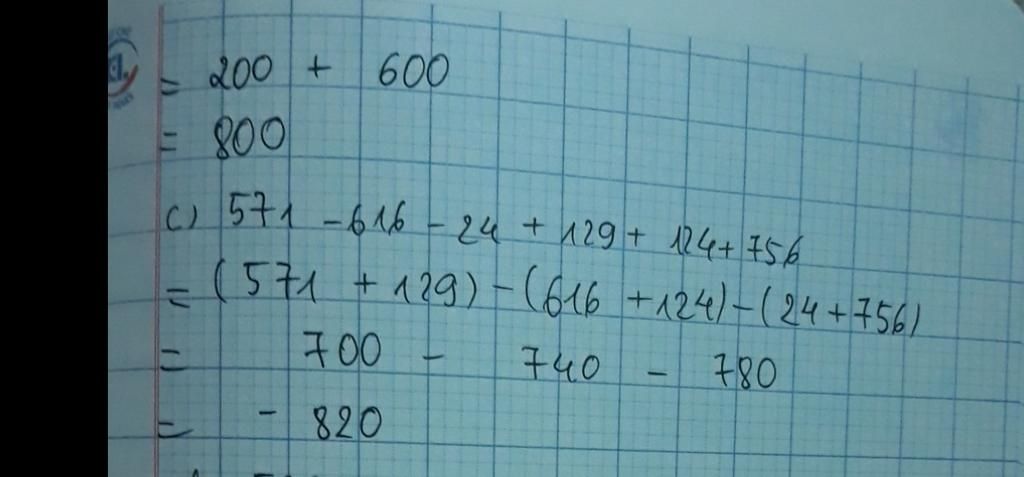 = 200 + 600
= 800
c) 571 - 616 - 24 + 129 + 124 + 756
= (571 + 129) - (616 + 124) - (24 + 756)
= 700 - 740 - 780
= - 820